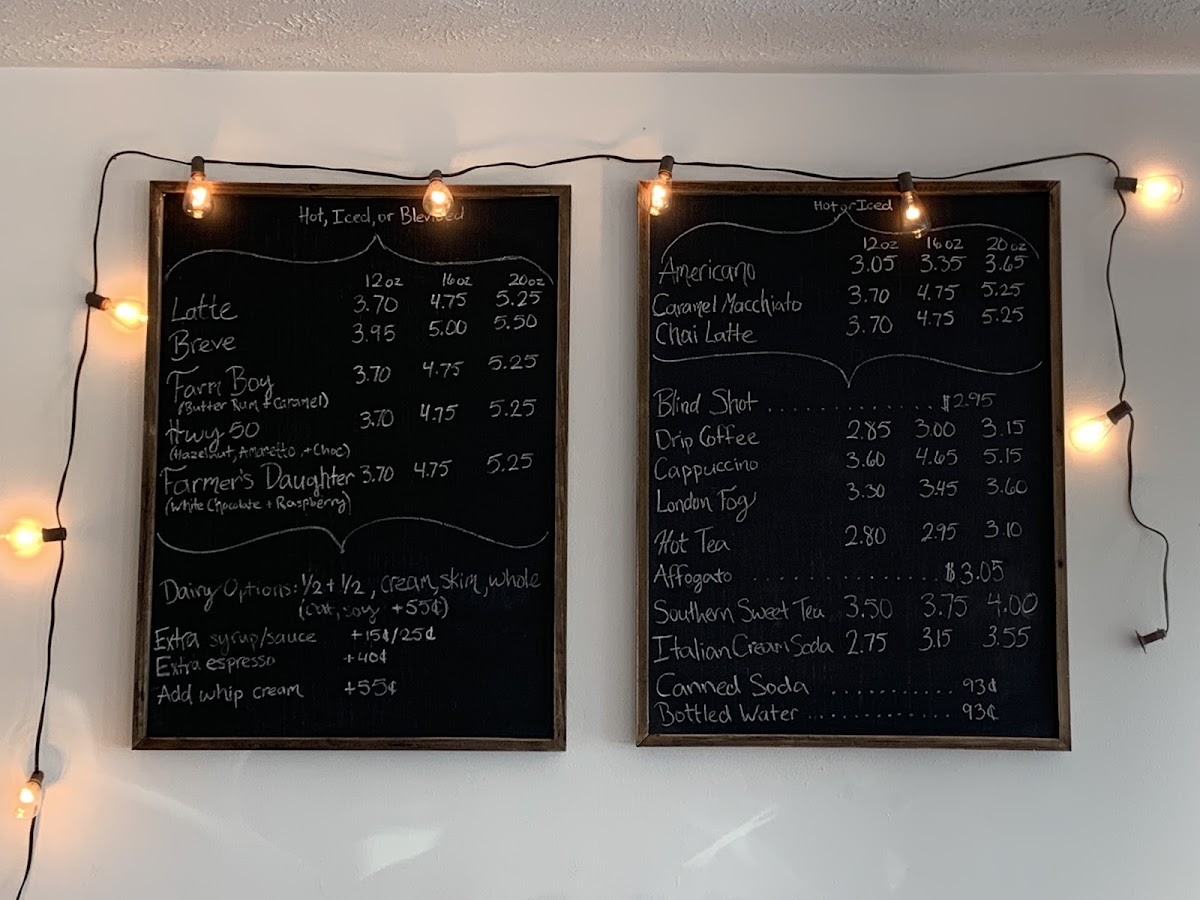 Hot, Iced, or Blended
12oz 16oz 20oz
Latte 3.70 4.75 5.25
Breve 3.95 5.00 5.50
Farm Boy 3.70 4.75 5.25
(Butter Rum + Caramel)
Hwy 50 3.70 4.75 5.25
(Hazelnut, Amaretto, + Choc)
Farmer's Daughter 3.70 4.75 5.25
(White Chocolate + Raspberry)
Dairy Options: 1/2 + 1/2, cream, skim, whole
(oat, soy +55¢)
Extra syrup/sauce +15¢/25¢
Extra espresso +40¢
Add whip cream +55¢
Hot or Iced
12oz 16oz 20oz
Americano 3.05 3.35 3.65
Caramel Macchiato 3.70 4.75 5.25
Chai Latte 3.70 4.75 5.25
Blind Shot .................. $2.95
Drip Coffee 2.85 3.00 3.15
Cappuccino 3.60 4.65 5.15
London Fog 3.30 3.45 3.60
Hot Tea 2.80 2.95 3.10
Affogato .................. $3.05
Southern Sweet Tea 3.50 3.75 4.00
Italian Cream Soda 2.75 3.15 3.55
Canned Soda ............ 93¢
Bottled Water .............. 93¢